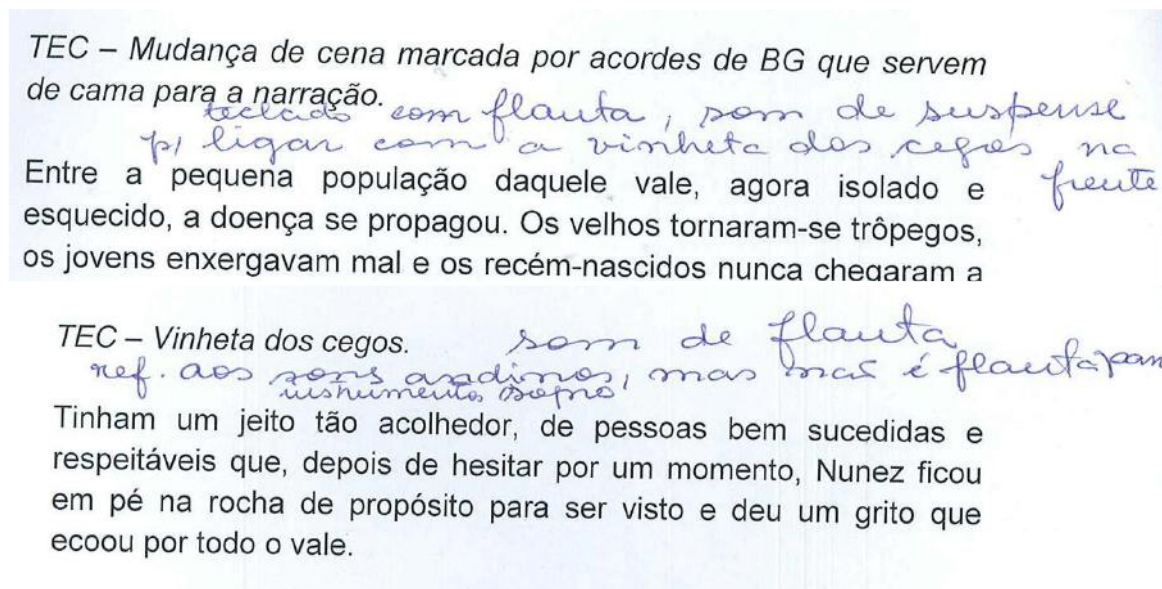 TEC – Mudança de cena marcada por acordes de BG que servem
de cama para a narração.
teclado com flauta, som de suspense
p/ ligar com a vinheta dos cegos na
frente
Entre a pequena população daquele vale, agora isolado e
esquecido, a doença se propagou. Os velhos tornaram-se trôpegos,
os jovens enxergavam mal e os recém-nascidos nunca chegaram a
TEC – Vinheta dos cegos. som de flauta
ref. aos sons andinos, mas não é flauta pan
instrumento sopro
Tinham um jeito tão acolhedor, de pessoas bem sucedidas e
respeitáveis que, depois de hesitar por um momento, Nunez ficou
em pé na rocha de propósito para ser visto e deu um grito que
ecoou por todo o vale.